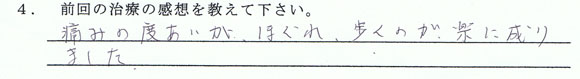 4. 前回の治療の感想を教えて下さい。
痛みの度あいが、ほぐれ、歩くのが、楽に成り
ました